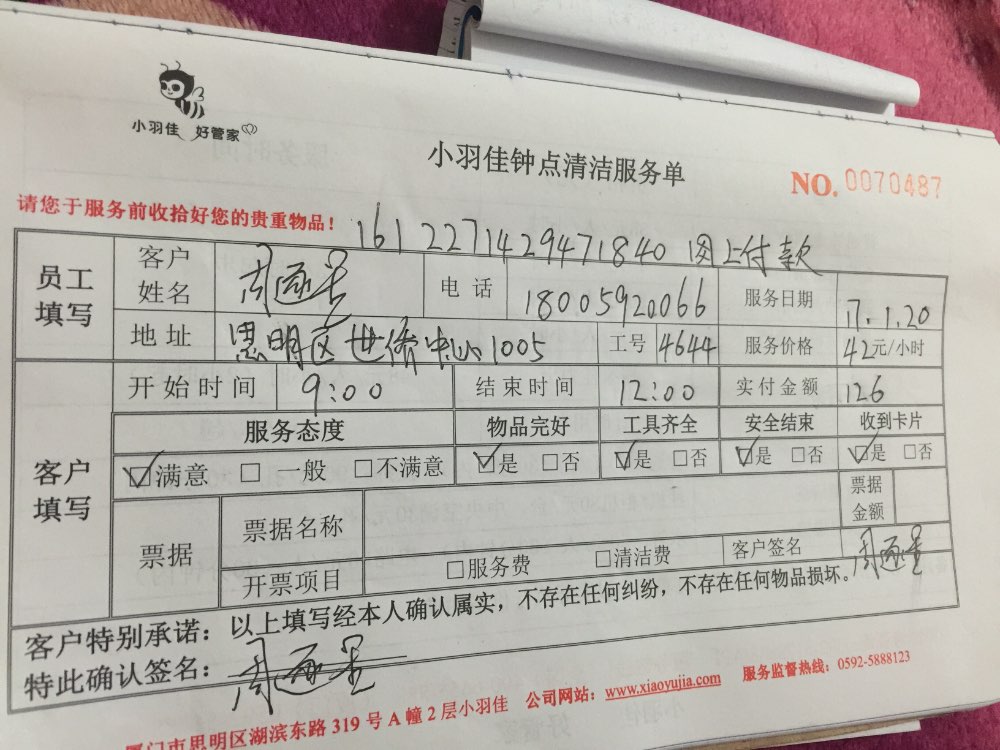 小羽佳 好管家
小羽佳钟点清洁服务单
NO. 0070487
请您于服务前收拾好您的贵重物品！
1612271429471840 网上付款
员工填写 客户姓名 周 电话 18005920066 服务日期 17.1.20
地址 思明区世侨中心1005 工号 4644 服务价格 42元/小时
客户填写 开始时间 9:00 结束时间 12:00 实付金额 126
服务态度 物品完好 工具齐全 安全结束 收到卡片
☑满意 □一般 □不满意 ☑是 □否 ☑是 □否 ☑是 □否 ☑是 □否
票据 票据名称 票据金额
开票项目 □服务费 □清洁费 客户签名 周
客户特别承诺：以上填写经本人确认属实，不存在任何纠纷，不存在任何物品损坏。
特此确认签名：周
厦门市思明区湖滨东路 319 号 A 幢 2 层小羽佳 公司网站：www.xiaoyujia.com 服务监督热线：0592-5888123